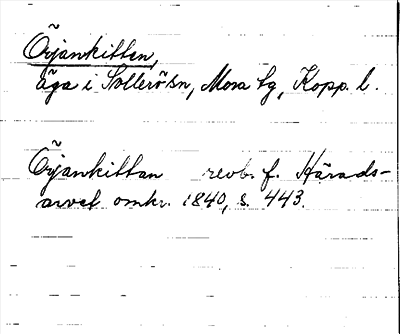 Öijankittan,
äga i Sollerö sn, Mora tg, Kopp. l.
Öijankittan revb. f. Härads-
arvet omkr. 1840, s. 443.